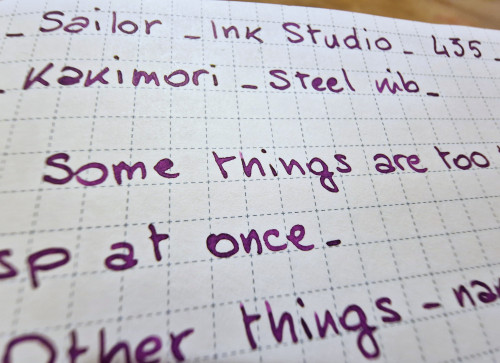 _ Sailor _ Ink Studio _ 435 _
_ Kakimori _ Steel nib _
Some things are too
sp at once _
Other things - nam